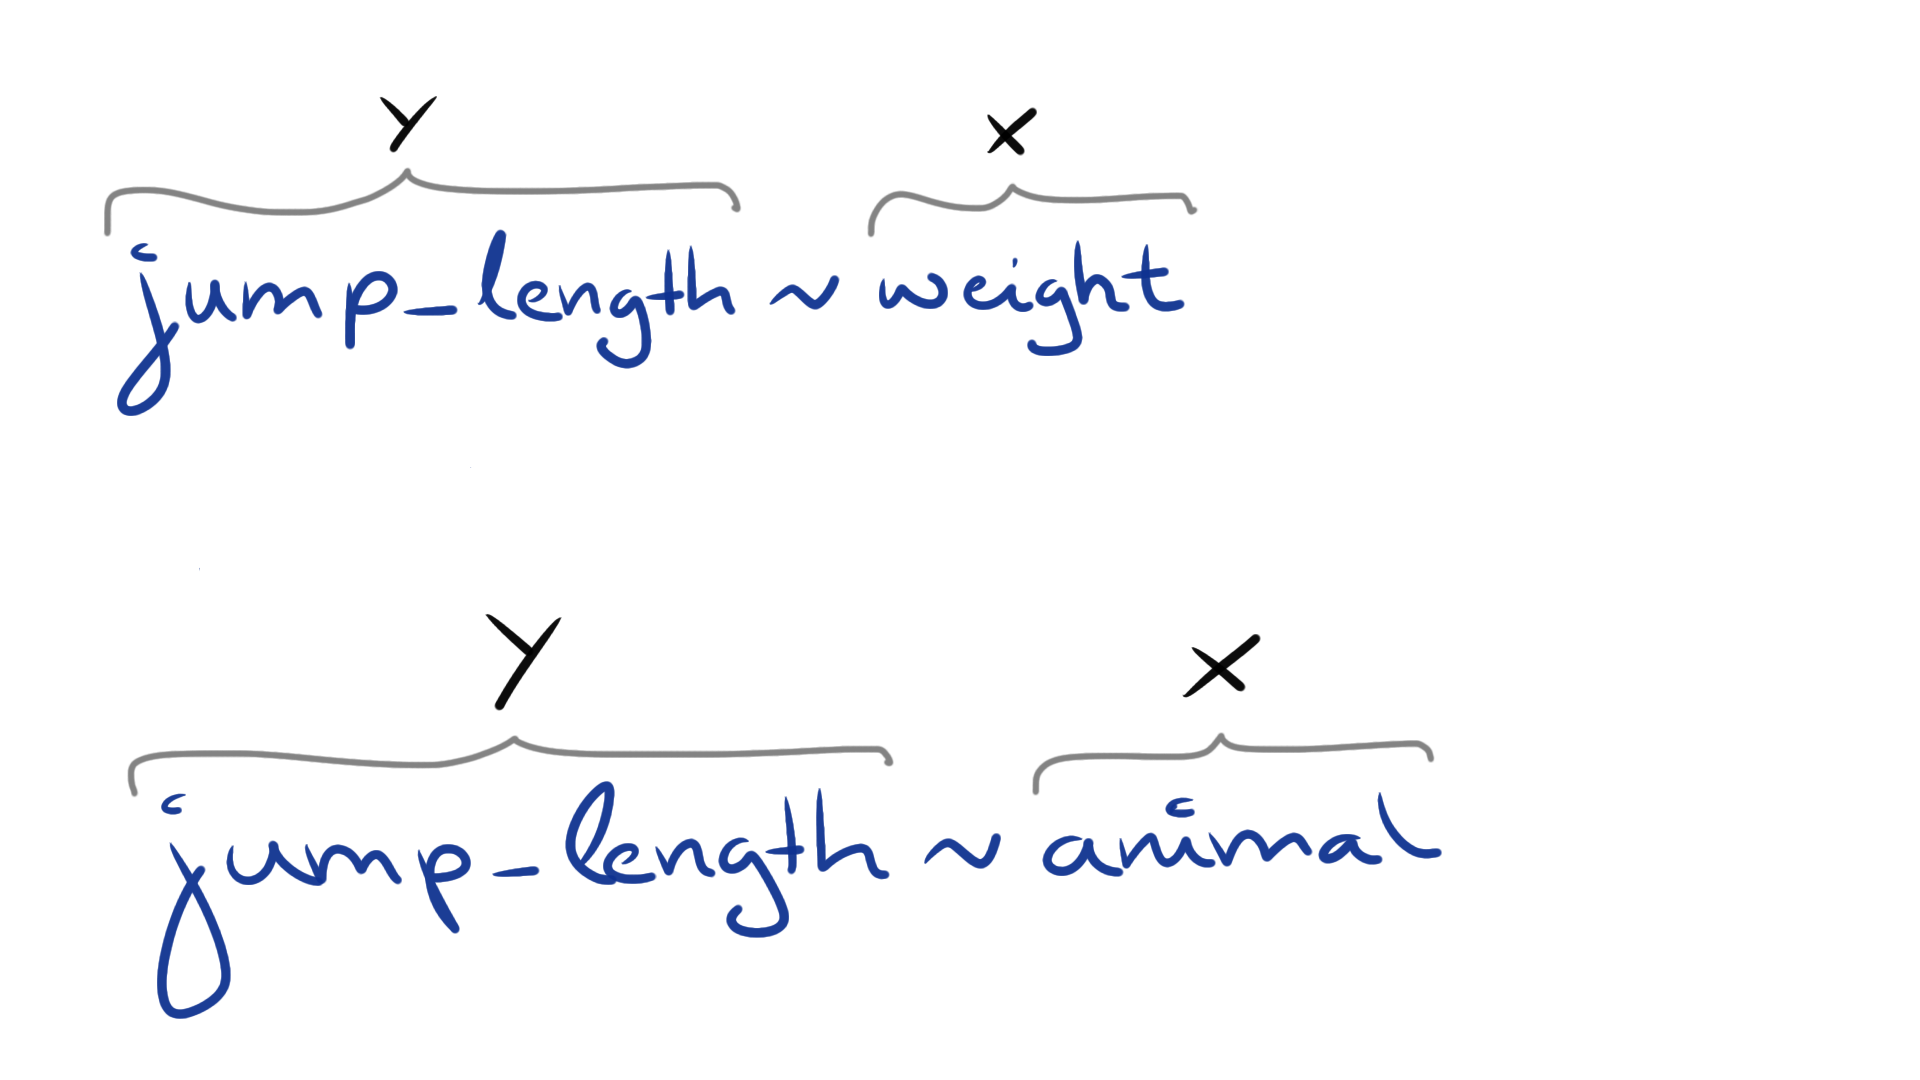 Y X
jump_length ~ weight
Y X
jump_length ~ animal